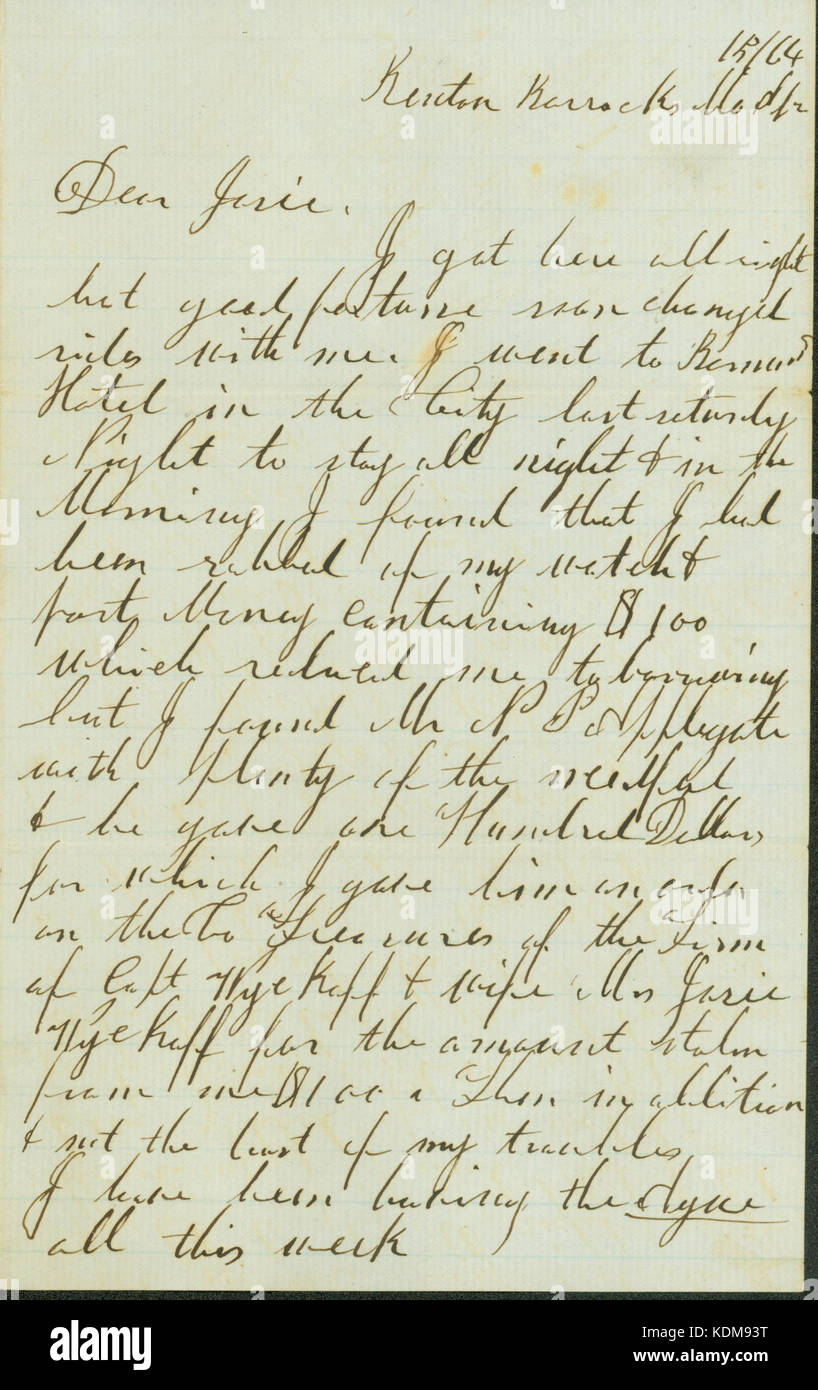 15/64
Benton Barracks Mo
Dear Josie.
I got here all right
but good fortune soon changed
sides with me. I went to
Hotel in the City last saturdy
Night to stay all night & in the
Morning I found that I had
been robbed of my watch &
port Money containing $100
which reduced me to borrowing
but I found Mr N P Applegate
with plenty of the needful
& he gave one Hundred Dollars
for which I gave him an order
on the Co Treasures of the Firm
of Capt Wyckoff & wife Mrs Josie
Wyckoff for the amount stolen
from me $100 Then in addition
& not the least of my troubles
I have been having the Ague
all this week
alamy
a
alamy stock photo
KDM93T
www.alamy.com